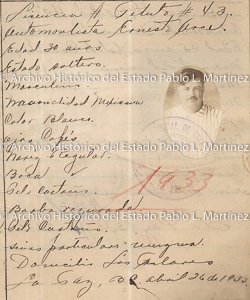 Licencia # Titulo # 43.
Automovilista Ernesto Arce.
Edad 30 años
Estado soltero.
Archivo Histórico del Estado Pablo L. Martínez
Masculino.
Nacionalidad Mexicana
Color Blanco.
Archivo Histórico del Estado Pablo L. Martínez
Ojos Cafés
Nariz Regular.
Boca
1933
Archivo Histórico del Estado Pablo L. Martínez
Barba
Archivo Histórico del Estado Pablo L. Martínez
Señas particulares ninguna.
Domicilio Los
La Paz, abril 26 de 1933